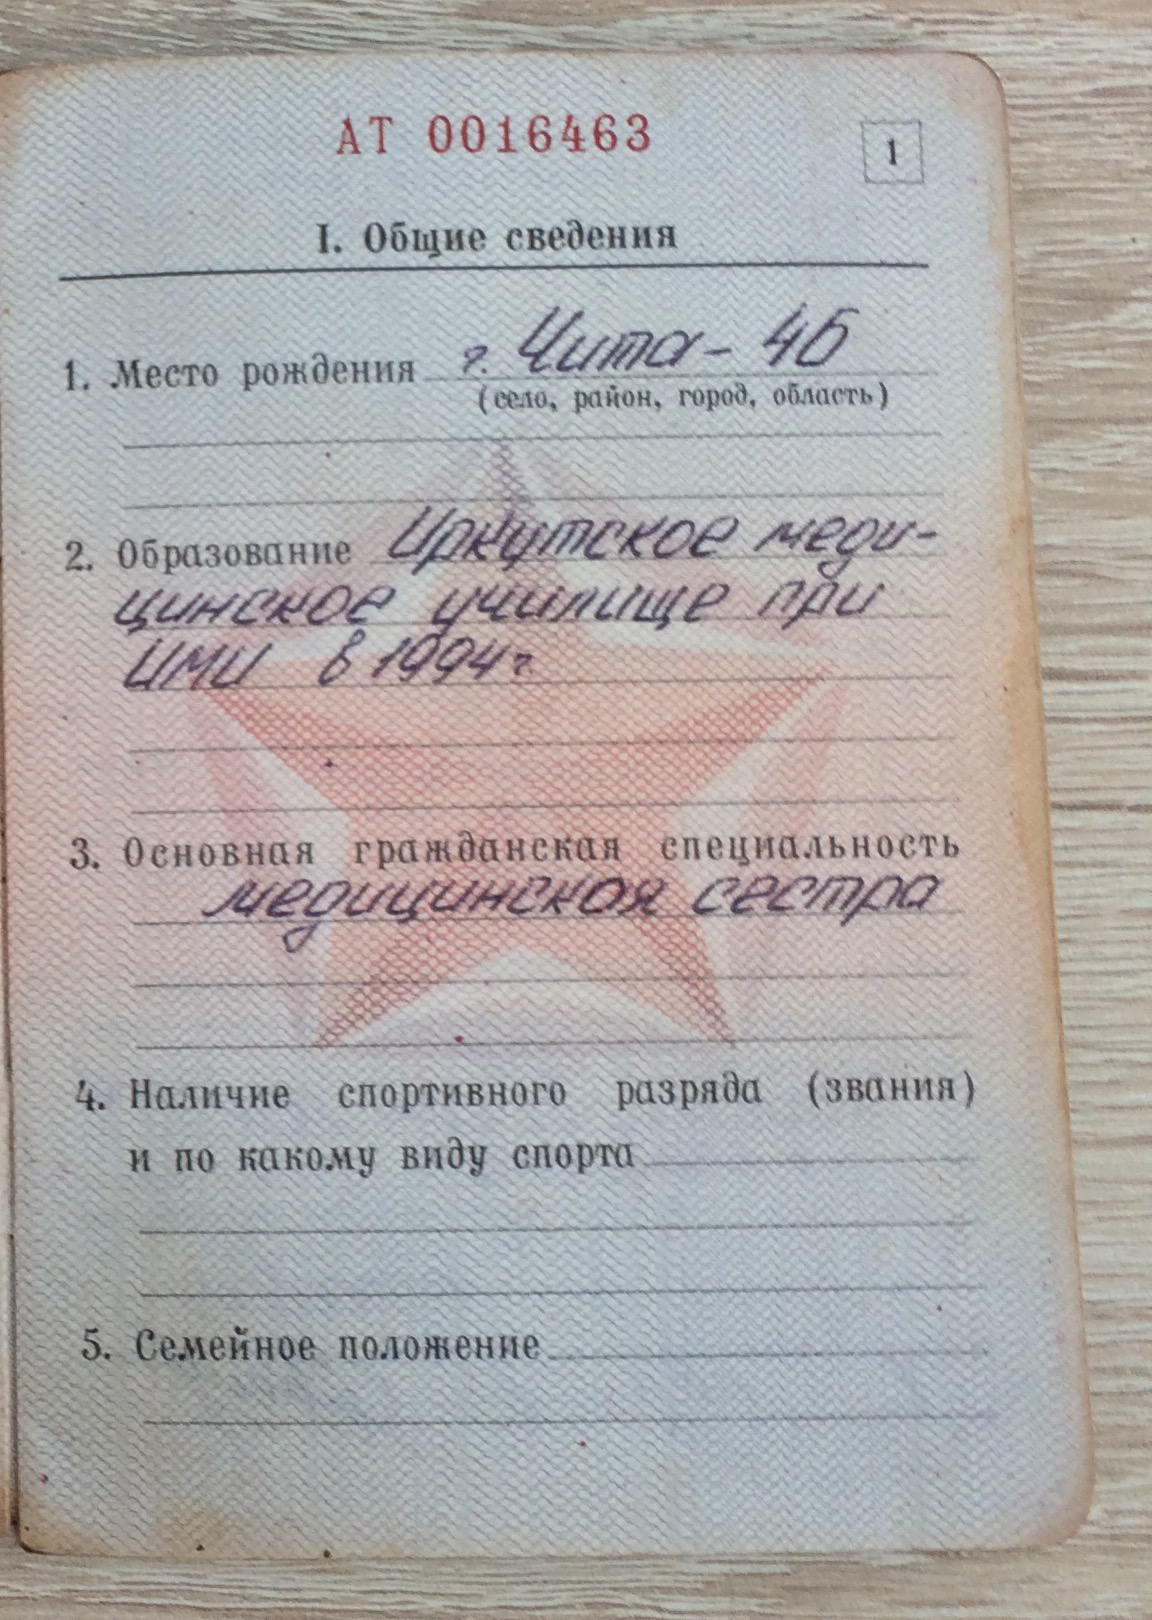 АТ 0016463
1
I. Общие сведения
1. Место рождения г. Чита - 46
(село, район, город, область)
2. Образование Иркутское меди-
цинское училище при
ИМИ в 1994 г.
3. Основная гражданская специальность
медицинская сестра
4. Наличие спортивного разряда (звания)
и по какому виду спорта
5. Семейное положение